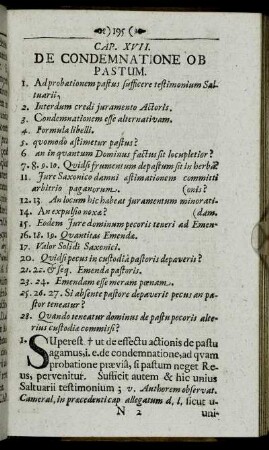 )195(
CAP. XVII.
DE CONDEMNATIONE OB
PASTUM.
1. Ad probationem pastus sufficere testimonium Sal-
tuarii,
2. Interdum credi juramento Actoris.
3. Condemnationem esse alternativam.
4. Formula libelli.
5. quomodo æstimetur pastus?
6 an in quantum Dominus factus sit locupletior?
7. 8. 9. 10. Quid si frumentum depastum sit in herba?
11. Jure Saxonico damni æstimationem committi
arbitrio paganorum. (onis?
12. 13. An locum hic habeat juramentum minorati-
14. An expulsio noxa? (dam.
15. Eodem Jure dominum pecoris teneri ad Emen-
16. 18. 19. Quantitas Emendæ.
17. Valor Solidi Saxonici.
20. Quid si pecus in custodiâ pastoris depaverit?
21. 22. & seq. Emenda pastoris.
23. 24. Emendam esse meram pœnam.
25. 26. 27. Si absente pastore depaverit pecus an pa-
stor teneatur?
28. Quando teneatur dominus de pastu pecoris alte-
rius custodiæ commissi?
1. SUperest † ut de effectu actionis de pastu
agamus, i. e. de condemnatione, ad qvam
probatione præviâ, si pastum neget Re-
us, pervenitur. Sufficit autem & hic unius
Saltuarii testimonium; v. Authorem observat.
Cameral, in præcedenti cap allegatum d, l, sicut u-
N 2
uni-